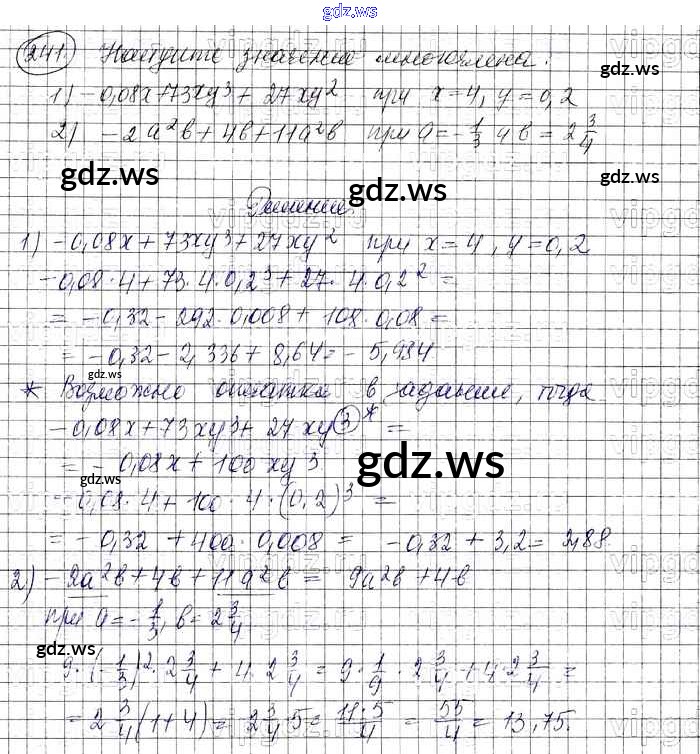 gdz.ws
241. Найдите значение многочлена:
1) -0,08x+73xy³+27xy² при x=4, y=0,2
2) -2a²b+4b+11a²b при a=-1/3 и b=2 3/4
gdz.ws
gdz.ws
gdz.ws
Решение
gdz.ws
1) -0,08x+73xy³+27xy² при x=4, y=0,2
-0,08·4+73·4·0,2³+27·4·0,2²=
= -0,32-292·0,008+108·0,08=
= -0,32-2,336+8,64=-5,984
* Возможно опечатка в задании, тогда
-0,08x+73xy³+27xy③* =
= -0,08x+100xy3
gdz.ws
-0,08·4+100·4·(0,2)³ =
= -0,32+400·0,008 = -0,32+3,2=2,88
2) -2a²b+4b+11a²b = 9a²b+4b
при a=-1/3, b=2 3/4
gdz.ws
gdz.ws
9·(-1/3)²·2 3/4+4·2 3/4=9·1/9·2 3/4+4·2 3/4=
=2 3/4(1+4)=2 3/4·5=11·5/4=55/4=13,75.
gdz.ws